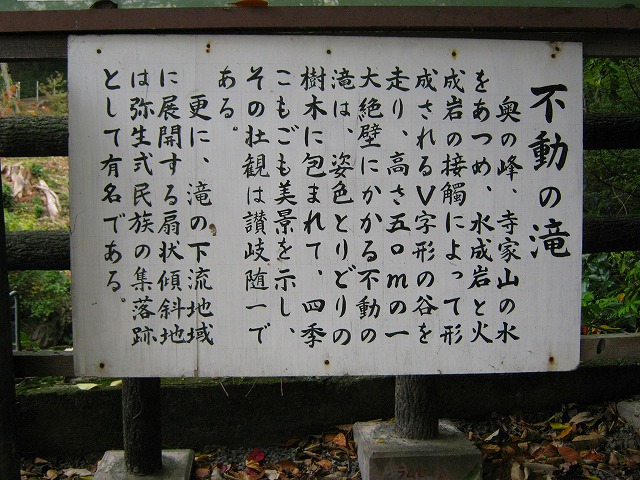 不動の滝
奥の峰、寺家山の水
をあつめ、水成岩と火
成岩の接觸によって形
成されるV字形の谷を
走り、高さ五〇mの一
大絶壁にかかる不動の
滝は、姿色とりどりの
樹木に包まれて、四季
こもごも美景を示し、
その壮観は讃岐随一で
ある。
更に、滝の下流地域
に展開する扇状傾斜地
は弥生式民族の集落跡
として有名である。